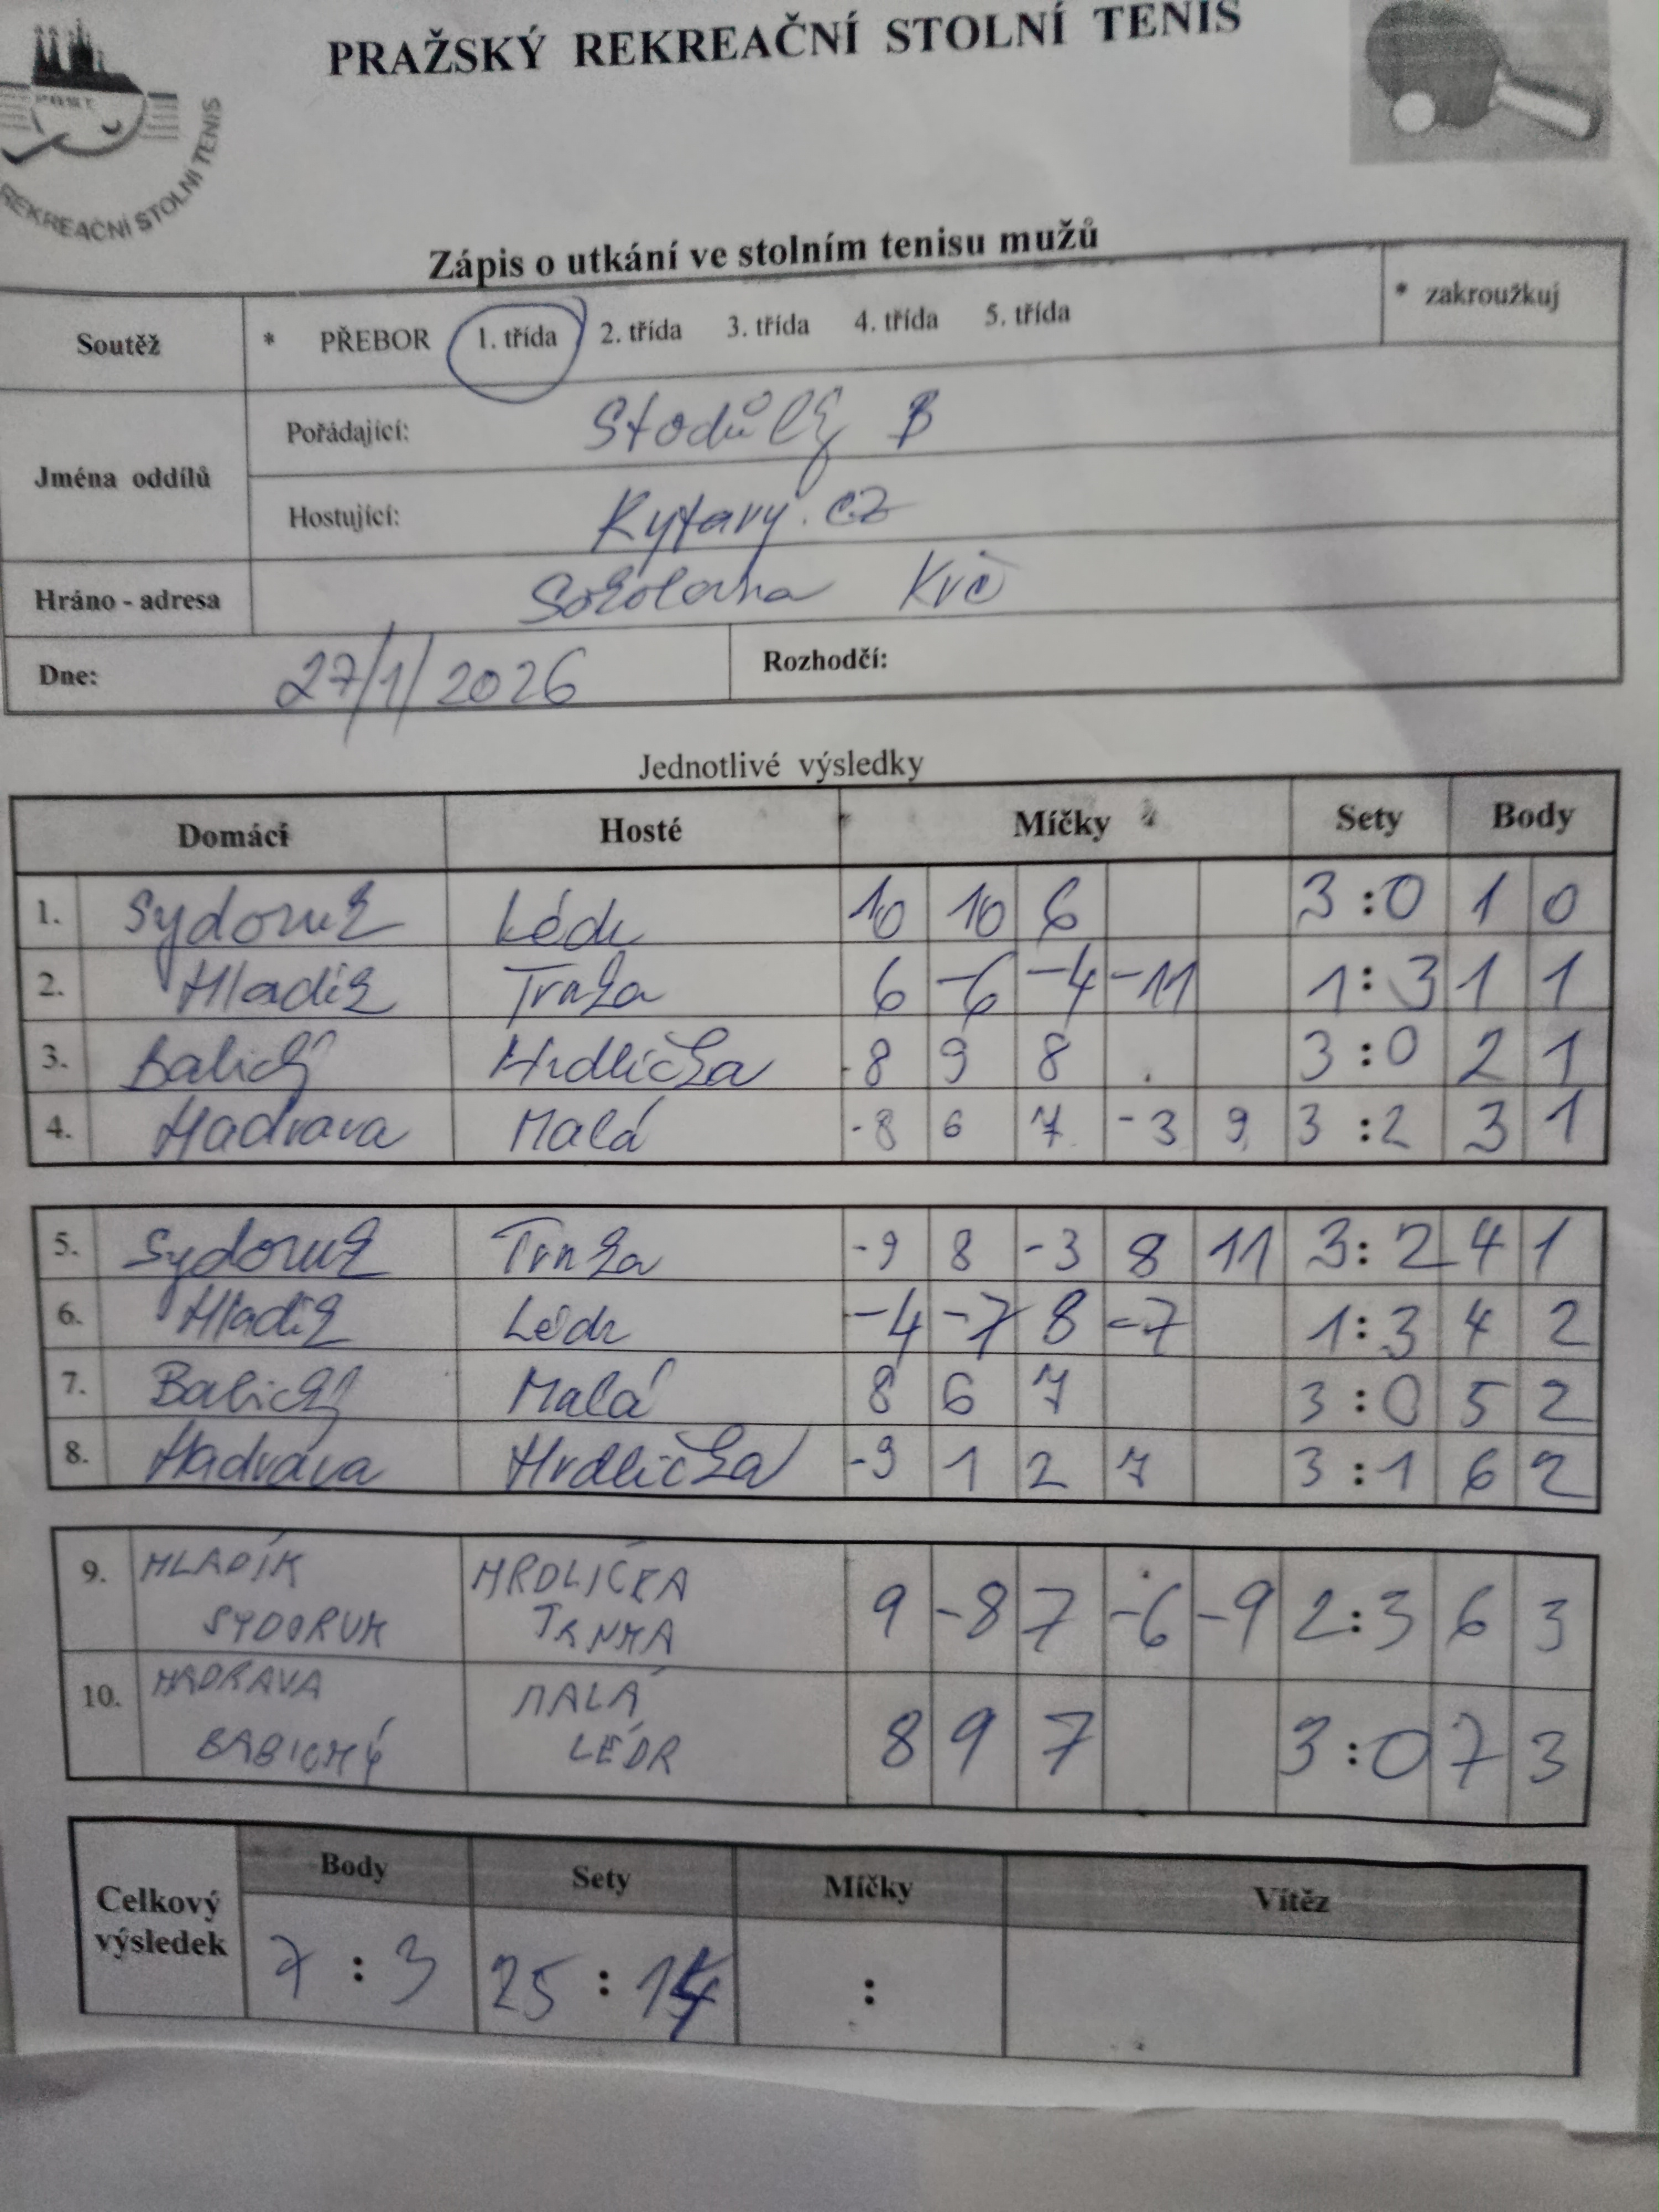 PRAŽSKÝ REKREAČNÍ STOLNÍ TENIS
POST
REKREAČNÍ STOLNÍ TENIS
Zápis o utkání ve stolním tenisu mužů
Soutěž * PŘEBOR 1. třída 2. třída 3. třída 4. třída 5. třída * zakroužkuj
Jména oddílů
Pořádající: Stodůlky B
Hostující: Kytary.cz
Hráno - adresa Sokolovna Krč
Dne: 27/1/2026 Rozhodčí:
Jednotlivé výsledky
Domácí Hosté Míčky Sety Body
1. Sydoruk Lédr 10 10 6 3:0 1 0
2. Hladík Trnka 6 -6 -4 -11 1:3 1 1
3. Babický Hrdlička 8 9 8 3:0 2 1
4. Hadrava Malá -8 6 7 -3 9 3:2 3 1
5. Sydoruk Trnka -9 8 -3 8 11 3:2 4 1
6. Hladík Lédr -4 -7 8 -7 1:3 4 2
7. Babický Malá 8 6 7 3:0 5 2
8. Hadrava Hrdlička -9 1 2 7 3:1 6 2
9. HLADÍK HRDLIČKA
SYDORUK TRNKA 9 -8 7 -6 -9 2:3 6 3
10. HADRAVA MALÁ
BABICKÝ LÉDR 8 9 7 3:0 7 3
Celkový výsledek
Body Sety Míčky Vítěz
7:3 25:14 :